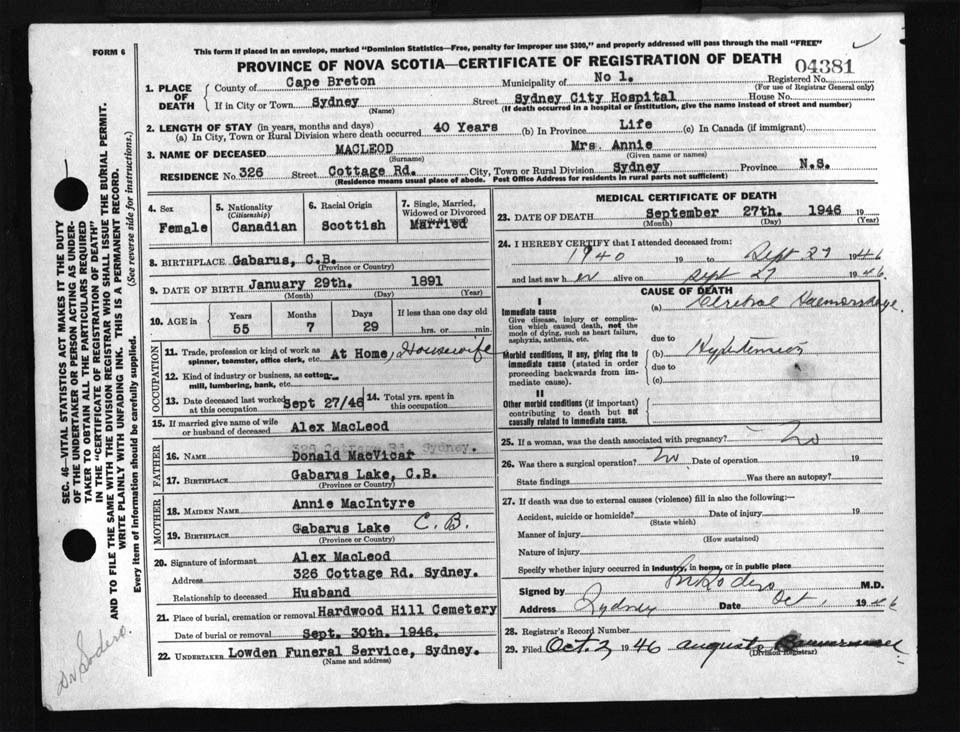 FORM 6
This form if placed in an envelope, marked "Dominion Statistics—Free, penalty for improper use $300," and properly addressed will pass through the mail "FREE"
PROVINCE OF NOVA SCOTIA—CERTIFICATE OF REGISTRATION OF DEATH
04381
1. PLACE OF DEATH
County of Cape Breton Municipality of No 1. Registered No.
(For use of Registrar General only)
If in City or Town Sydney Street Sydney City Hospital House No.
(Name) (If death occurred in a hospital or institution, give the name instead of street and number)
2. LENGTH OF STAY (in years, months and days)
(a) In City, Town or Rural Division where death occurred 40 Years (b) In Province Life (c) In Canada (if immigrant)
3. NAME OF DECEASED MACLEOD Mrs. Annie
(Surname) (Given name or names)
RESIDENCE No. 326 Street Cottage Rd. City, Town or Rural Division Sydney Province N.S.
(Residence means usual place of abode. Post Office Address for residents in rural parts not sufficient)
4. Sex Female
5. Nationality (Citizenship) Canadian
6. Racial Origin Scottish
7. Single, Married, Widowed or Divorced Married
8. BIRTHPLACE Gabarus, C.B.
(Province or Country)
9. DATE OF BIRTH January 29th. 1891
(Month) (Day) (Year)
10. AGE in Years 55 Months 7 Days 29 If less than one day old hrs. or min.
OCCUPATION
11. Trade, profession or kind of work as spinner, teamster, office clerk, etc. At Home, Housewife
12. Kind of industry or business, as cotton-mill, lumbering, bank, etc.
13. Date deceased last worked at this occupation Sept 27/46
14. Total yrs. spent in this occupation
15. If married give name of wife or husband of deceased Alex MacLeod
326 Cottage Rd. Sydney.
FATHER
16. NAME Donald MacVicar
17. BIRTHPLACE Gabarus Lake, C.B.
(Province or Country)
MOTHER
18. MAIDEN NAME Annie MacIntyre
19. BIRTHPLACE Gabarus Lake C. B.
(Province or Country)
20. Signature of informant Alex MacLeod
Address 326 Cottage Rd. Sydney.
Relationship to deceased Husband
21. Place of burial, cremation or removal Hardwood Hill Cemetery
Date of burial or removal Sept. 30th. 1946.
22. UNDERTAKER Lowden Funeral Service, Sydney.
(Name and address)
MEDICAL CERTIFICATE OF DEATH
23. DATE OF DEATH September 27th. 1946 19
(Month) (Day) (Year)
24. I HEREBY CERTIFY that I attended deceased from:
1940 19 to Sept 27 1946
and last saw her alive on Sept 27 1946.
CAUSE OF DEATH
I
Immediate cause (a) Cerebral Haemorrhage
Give disease, injury or complication which caused death, not the mode of dying, such as heart failure, asphyxia, asthenia, etc.
due to
Morbid conditions, if any, giving rise to immediate cause (stated in order proceeding backwards from immediate cause).
(b)
due to
(c)
II
Other morbid conditions (if important) contributing to death but not causally related to immediate cause.
25. If a woman, was the death associated with pregnancy? No
26. Was there a surgical operation? No Date of operation 19
State findings Was there an autopsy?
27. If death was due to external causes (violence) fill in also the following:—
Accident, suicide or homicide? Date of injury 19
(State which)
Manner of injury
(How sustained)
Nature of injury
Specify whether injury occurred in industry, in home, or in public place
Signed by Sodero M.D.
Address Sydney Date Oct 1 1946
28. Registrar's Record Number
29. Filed Oct. 2, 1946
(Division Registrar)
SEC. 46—VITAL STATISTICS ACT MAKES IT THE DUTY
OF THE UNDERTAKER OR PERSON ACTING AS UNDERTAKER TO OBTAIN ALL THE PARTICULARS REQUIRED
IN THE "CERTIFICATE OF REGISTRATION OF DEATH"
AND TO FILE THE SAME WITH THE DIVISION REGISTRAR WHO SHALL ISSUE THE BURIAL PERMIT.
WRITE PLAINLY WITH UNFADING INK. THIS IS A PERMANENT RECORD.
Every item of information should be carefully supplied. (See reverse side for instructions.)
Dr Sodero.